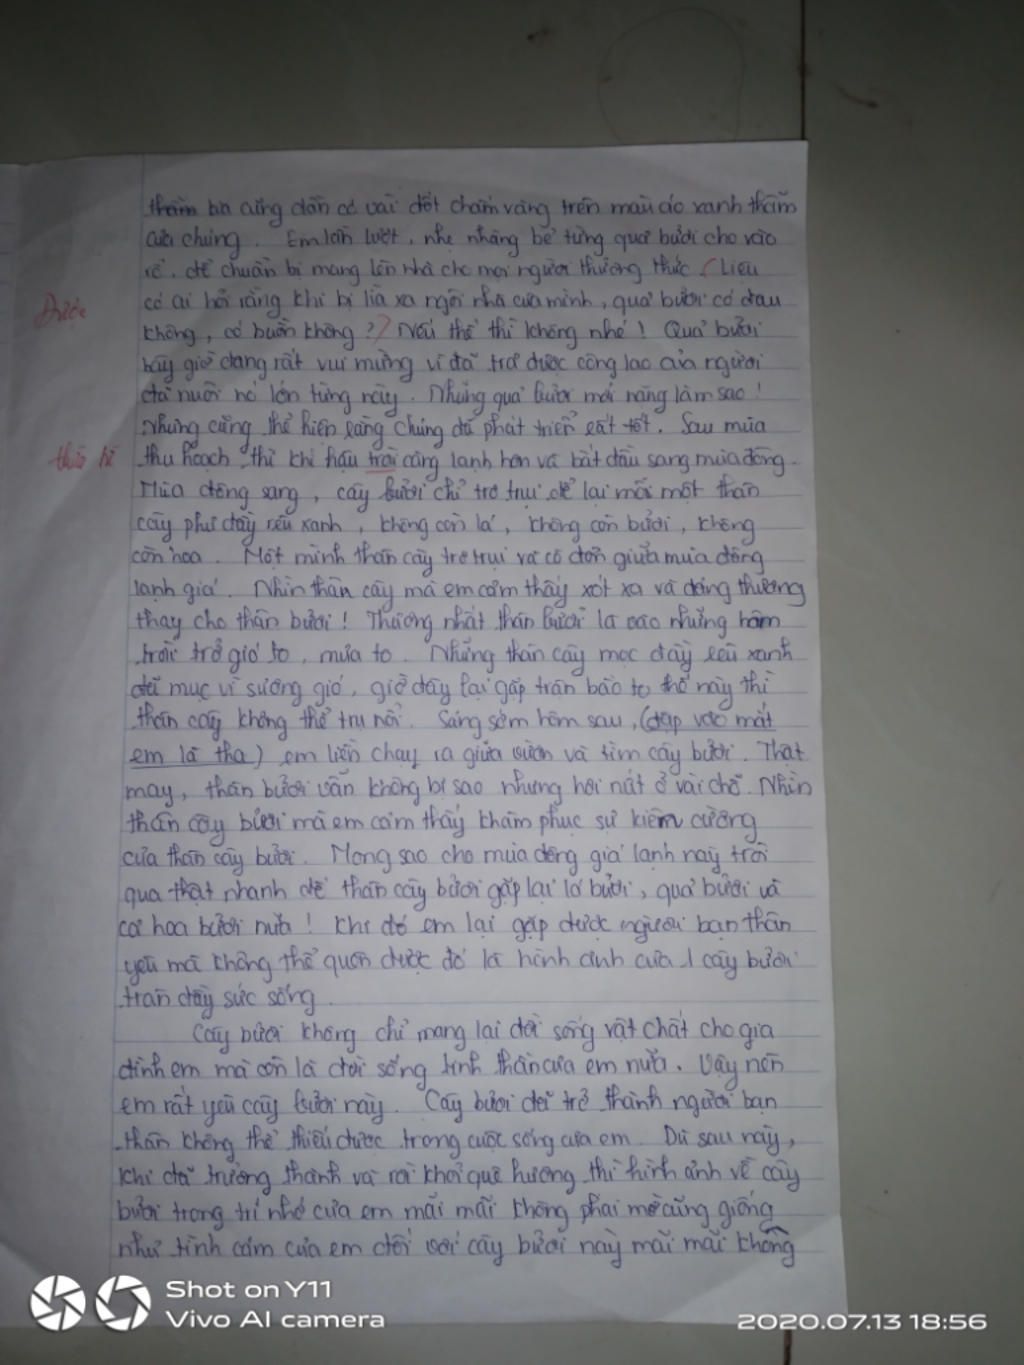 bà cũng dần có vài đốt chấm vàng trên màu áo xanh thẫm
của chúng. Em lần lượt, nhẹ nhàng bẻ từng quả bưởi cho vào
rổ, để chuẩn bị mang lên nhà cho mọi người thưởng thức. (Liệu
có ai hỏi rằng khi bị lìa xa ngôi nhà của mình, quả bưởi có đau
Được
không, có buồn không?) Nếu thế thì không nhé! Quả bưởi
bây giờ đang rất vui mừng vì đã trả được công lao của người
đã nuôi nó lớn từng này. Những quả bưởi mới nặng làm sao!
Nhưng cũng thể hiện rằng chúng đã phát triển rất tốt. Sau mùa
thu hoạch thì khí hậu trời càng lạnh hơn và bắt đầu sang mùa đông.
Mùa đông sang, cây bưởi chỉ trơ trụi để lại mỗi một thân
cây phủ đầy rêu xanh, không còn lá, không còn bưởi, không
còn hoa. Một mình thân cây trơ trụi và cô đơn giữa mùa đông
lạnh giá. Nhìn thân cây mà em cảm thấy xót xa và đáng thương
thay cho thân bưởi! Thương nhất thân bưởi là vào những hôm
trời trở gió to, mưa to. Những thân cây mọc đầy rêu xanh
đã mục vì sương gió, giờ đây lại gặp trận bão to thế này thì
thân cây không thể trụ nổi. Sáng sớm hôm sau, (đập vào mắt
em là tha) em liền chạy ra giữa vườn và tìm cây bưởi. Thật
may, thân bưởi vẫn không bị sao nhưng hơi nát ở vài chỗ. Nhìn
thân cây bưởi mà em cảm thấy khâm phục sự kiên cường
của thân cây bưởi. Mong sao cho mùa đông giá lạnh này trôi
qua thật nhanh để thân cây bưởi gặp lại lá bưởi, quả bưởi và
cả hoa bưởi nữa! Khi đó em lại gặp được người bạn thân
yêu mà không thể quên được đó là hình ảnh của 1 cây bưởi
tràn đầy sức sống.
Cây bưởi không chỉ mang lại đời sống vật chất cho gia
đình em mà còn là đời sống tinh thần của em nữa. Vậy nên
em rất yêu cây bưởi này. Cây bưởi đã trở thành người bạn
thân không thể thiếu được trong cuộc sống của em. Dù sau này,
khi đã trưởng thành và rời khỏi quê hương thì hình ảnh về cây
bưởi trong trí nhớ của em mãi mãi không phai mờ cũng giống
như tình cảm của em đối với cây bưởi này mãi mãi không
Shot on Y11
Vivo AI camera
2020.07.13 18:56